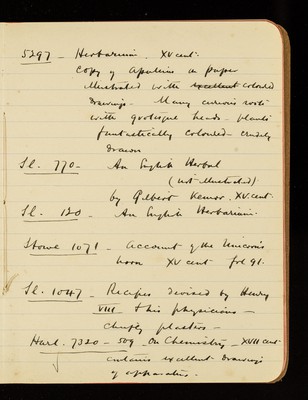 5297 - Herbarium. XV cent.
Copy of Apuleius on paper
illustrated with excellent coloured
drawings - Many curious roots
with grotesque heads - plants
fantastically coloured - crudely
drawn
Sl. 770 - An English Herbal
(not illustrated)
by Gilbert Kemor. XV. cent.
Sl. 120 - An English Herbarium.
Stowe 1071 - Account of the Unicorns
horn XV cent fol 91.
Sl. 1047 - Recipes devised by Henry
VIII & his physicians -
chiefly plasters -
Harl. 7320 - 509 On Chemistry - XVII cent
contains excellent drawings
of apparatus.